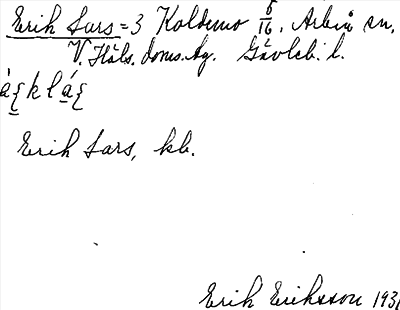 Erik Lars = 3 Koldemo 6/16, Arbrå sn,
V. Häls. doms. Ag. Gävleb. l.
Erik Lars, kb.
Erik Eriksson 193